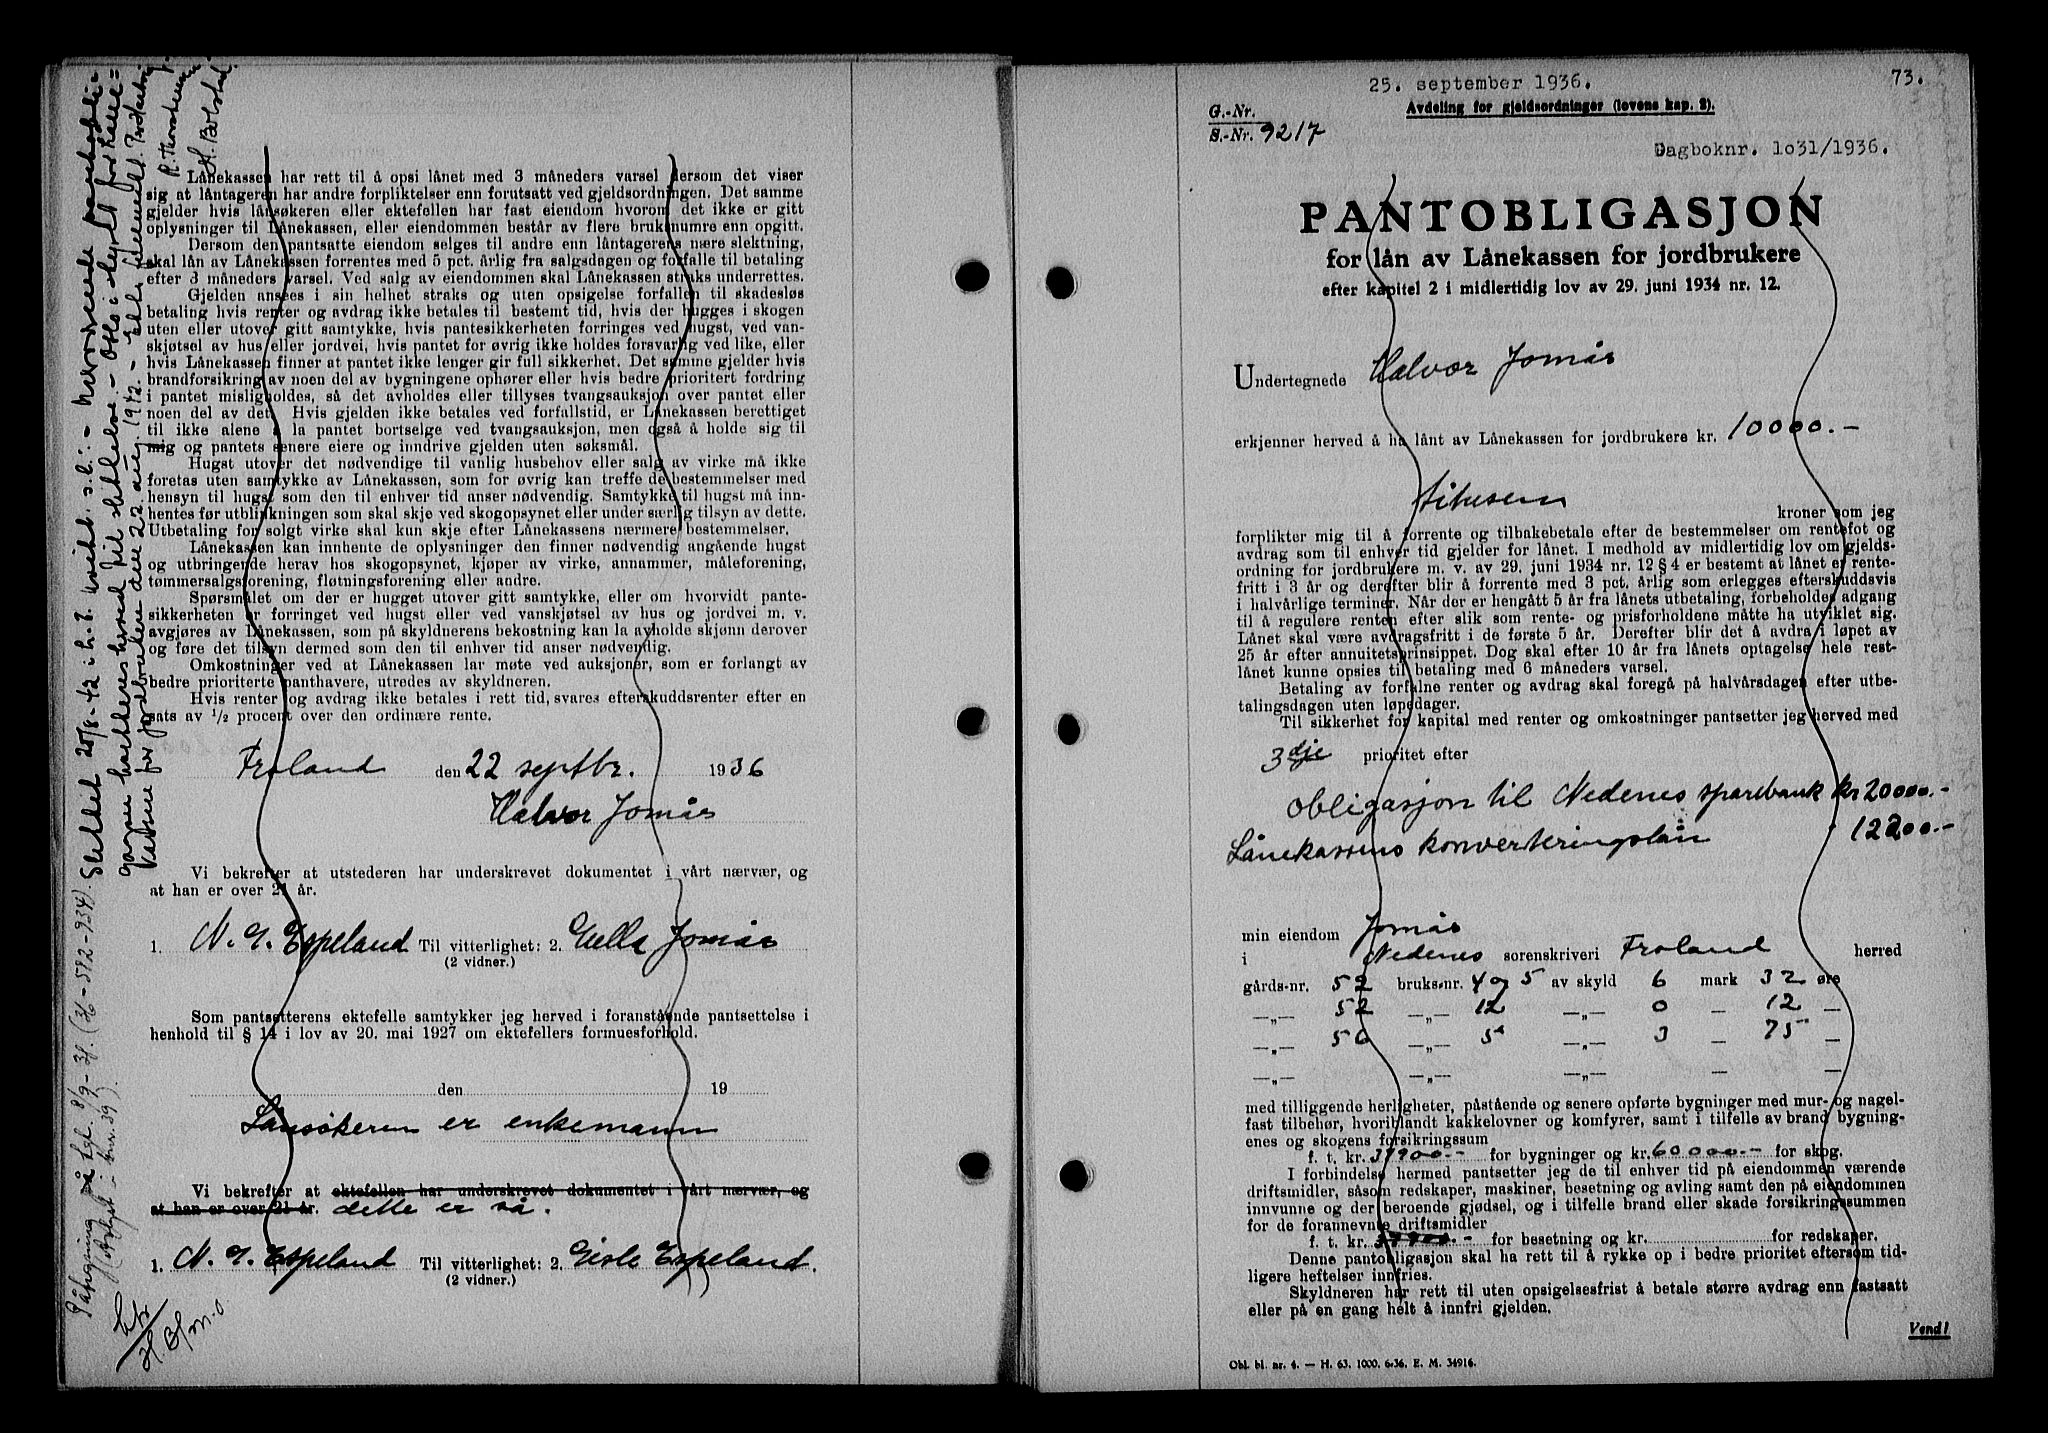 Lånekassen har rett til å opsi lånet med 3 måneders varsel dersom det viser
sig at låntageren har andre forpliktelser enn forutsatt ved gjeldsordningen. Det samme
gjelder hvis lånsøkeren eller ektefellen har fast eiendom hvorom det ikke er gitt
oplysninger til Lånekassen, eller eiendommen består av flere bruksnumre enn opgitt.
Dersom den pantsatte eiendom selges til andre enn låntagerens nære slektning,
skal lån av Lånekassen forrentes med 5 pct. årlig fra salgsdagen og forfalle til betaling
efter 3 måneders varsel. Ved salg av eiendommen skal Lånekassen straks underrettes.
Gjelden ansees i sin helhet straks og uten opsigelse forfallen til skadesløs
betaling hvis renter og avdrag ikke betales til bestemt tid, hvis der hugges i skogen
uten eller utover gitt samtykke, hvis pantesikkerheten forringes ved hugst, ved van-
skjøtsel av hus eller jordvei, hvis pantet for øvrig ikke holdes forsvarlig ved like, eller
hvis Lånekassen finner at pantet ikke lenger gir full sikkerhet. Det samme gjelder hvis
brandforsikring av noen del av bygningene ophører eller hvis bedre prioritert fordring
i pantet misligholdes, så det avholdes eller tillyses tvangsauksjon over pantet eller
noen del av det. Hvis gjelden ikke betales ved forfallstid, er Lånekassen berettiget
til ikke alene å la pantet bortselge ved tvangsauksjon, men også å holde sig til
mig og pantets senere eiere og inndrive gjelden uten søksmål.
Hugst utover det nødvendige til vanlig husbehov eller salg av virke må ikke
foretas uten samtykke av Lånekassen, som for øvrig kan treffe de bestemmelser med
hensyn til hugst som den til enhver tid anser nødvendig. Samtykke til hugst må inn-
hentes før utblinkningen som skal skje ved skogopsynet eller under særlig tilsyn av dette.
Utbetaling for solgt virke skal kun skje efter Lånekassens nærmere bestemmelser.
Lånekassen kan innhente de oplysninger den finner nødvendig angående hugst
og utbringende herav hos skogopsynet, kjøper av virke, annammer, måleforening,
tømmersalgsforening, fløtningsforening eller andre.
Spørsmålet om der er hugget utover gitt samtykke, eller om hvorvidt pante-
sikkerheten er forringet ved hugst eller ved vanskjøtsel av hus og jordvei m. v.
avgjøres av Lånekassen, som på skyldnerens bekostning kan la avholde skjønn derover
og føre det tilsyn dermed som den til enhver tid anser nødvendig.
Omkostninger ved at Lånekassen lar møte ved auksjoner, som er forlangt av
bedre prioriterte panthavere, utredes av skyldneren.
Hvis renter og avdrag ikke betales i rett tid, svares efterskuddsrenter efter en
sats av 1/2 procent over den ordinære rente.
Froland den 22 septbr. 1936
Halvor Jomås
Vi bekrefter at utstederen har underskrevet dokumentet i vårt nærvær, og
at han er over 21 år.
1. N. G. Espeland Til vitterlighet: 2. Gella Jomås
(2 vidner.)
Som pantsetterens ektefelle samtykker jeg herved i foranstående pantsettelse i
henhold til § 14 i lov av 20. mai 1927 om ektefellers formuesforhold.
den 19
Lånsøkeren er enkemann
Vi bekrefter at ektefellen har underskrevet dokumentet i vårt nærvær, og
at han er over 21 år. dette er så.
1. N. G. Espeland Til vitterlighet: 2. Gisle Espeland.
(2 vidner.)
Slettet 20/8-42 i h. t.
gasjon kvitteres herved til slettelse. - Oslo i
Kassen for jordbrukere den 22 aug. 1942. -
R. Thorstensen
H. Bolstad.
Påtegning på tgl. 8/9-38. (36-592-934).
25. september 1936.
73.
Avdeling for gjeldsordninger (lovens kap. 2).
G.-Nr.
S.-Nr. 9217
Dagboknr. 1o31/1936.
PANTOBLIGASJON
for lån av Lånekassen for jordbrukere
efter kapitel 2 i midlertidig lov av 29. juni 1934 nr. 12.
Undertegnede Halvor Jomås
erkjenner herved å ha lånt av Lånekassen for jordbrukere kr. 10000.-
titusen
kroner som jeg
forplikter mig til å forrente og tilbakebetale efter de bestemmelser om rentefot og
avdrag som til enhver tid gjelder for lånet. I medhold av midlertidig lov om gjelds-
ordning for jordbrukere m. v. av 29. juni 1934 nr. 12 § 4 er bestemt at lånet er rente-
fritt i 3 år og derefter blir å forrente med 3 pct. årlig som erlegges efterskuddsvis
i halvårlige terminer. Når der er hengått 5 år fra lånets utbetaling, forbeholdes adgang
til å regulere renten efter slik som rente- og prisforholdene måtte ha utviklet sig.
Lånet skal være avdragsfritt i de første 5 år. Derefter blir det å avdra i løpet av
25 år efter annuitetsprinsippet. Dog skal efter 10 år fra lånets optagelse hele rest-
lånet kunne opsies til betaling med 6 måneders varsel.
Betaling av forfalne renter og avdrag skal foregå på halvårsdagen efter utbe-
talingsdagen uten løpedager.
Til sikkerhet for kapital med renter og omkostninger pantsetter jeg herved med
3 dje prioritet efter
Obligasjon til Nedenes sparebank kr 20000.-
Lånekassens konverteringslån " 12200.-
min eiendom Jomås
i Nedenes sorenskriveri Froland herred
gårds-nr. 52 bruks-nr. 4 og 5 av skyld 6 mark 32 øre
-„- 52 -„- 12 -„- 0 - 12 -
-„- 56 -„- 5 -„- 3 - 75 -
-„- -„- -„- - -
med tilliggende herligheter, påstående og senere opførte bygninger med mur- og nagel-
fast tilbehør, hvoriblandt kakkelovner og komfyrer, samt i tilfelle av brand bygning-
enes og skogens forsikringssum
f. t. kr. 37900.- for bygninger og kr. 60000.- for skog.
I forbindelse hermed pantsetter jeg de til enhver tid på eiendommen værende
driftsmidler, såsom redskaper, maskiner, besetning og avling samt den på eiendommen
innvunne og der beroende gjødsel, og i tilfelle brand eller skade forsikringssummen
for de forannevnte driftsmidler
f. t. kr. 37900.- for besetning og kr. for redskaper.
Denne pantobligasjon skal ha rett til å rykke op i bedre prioritet eftersom tid-
ligere heftelser innfries.
Skyldneren har rett til uten opsigelsesfrist å betale større avdrag enn fastsatt
eller på en gang helt å innfri gjelden.
Vend!
Obl. bl. nr. 4. — H. 63. 1000. 6-36. E. M. 34916.